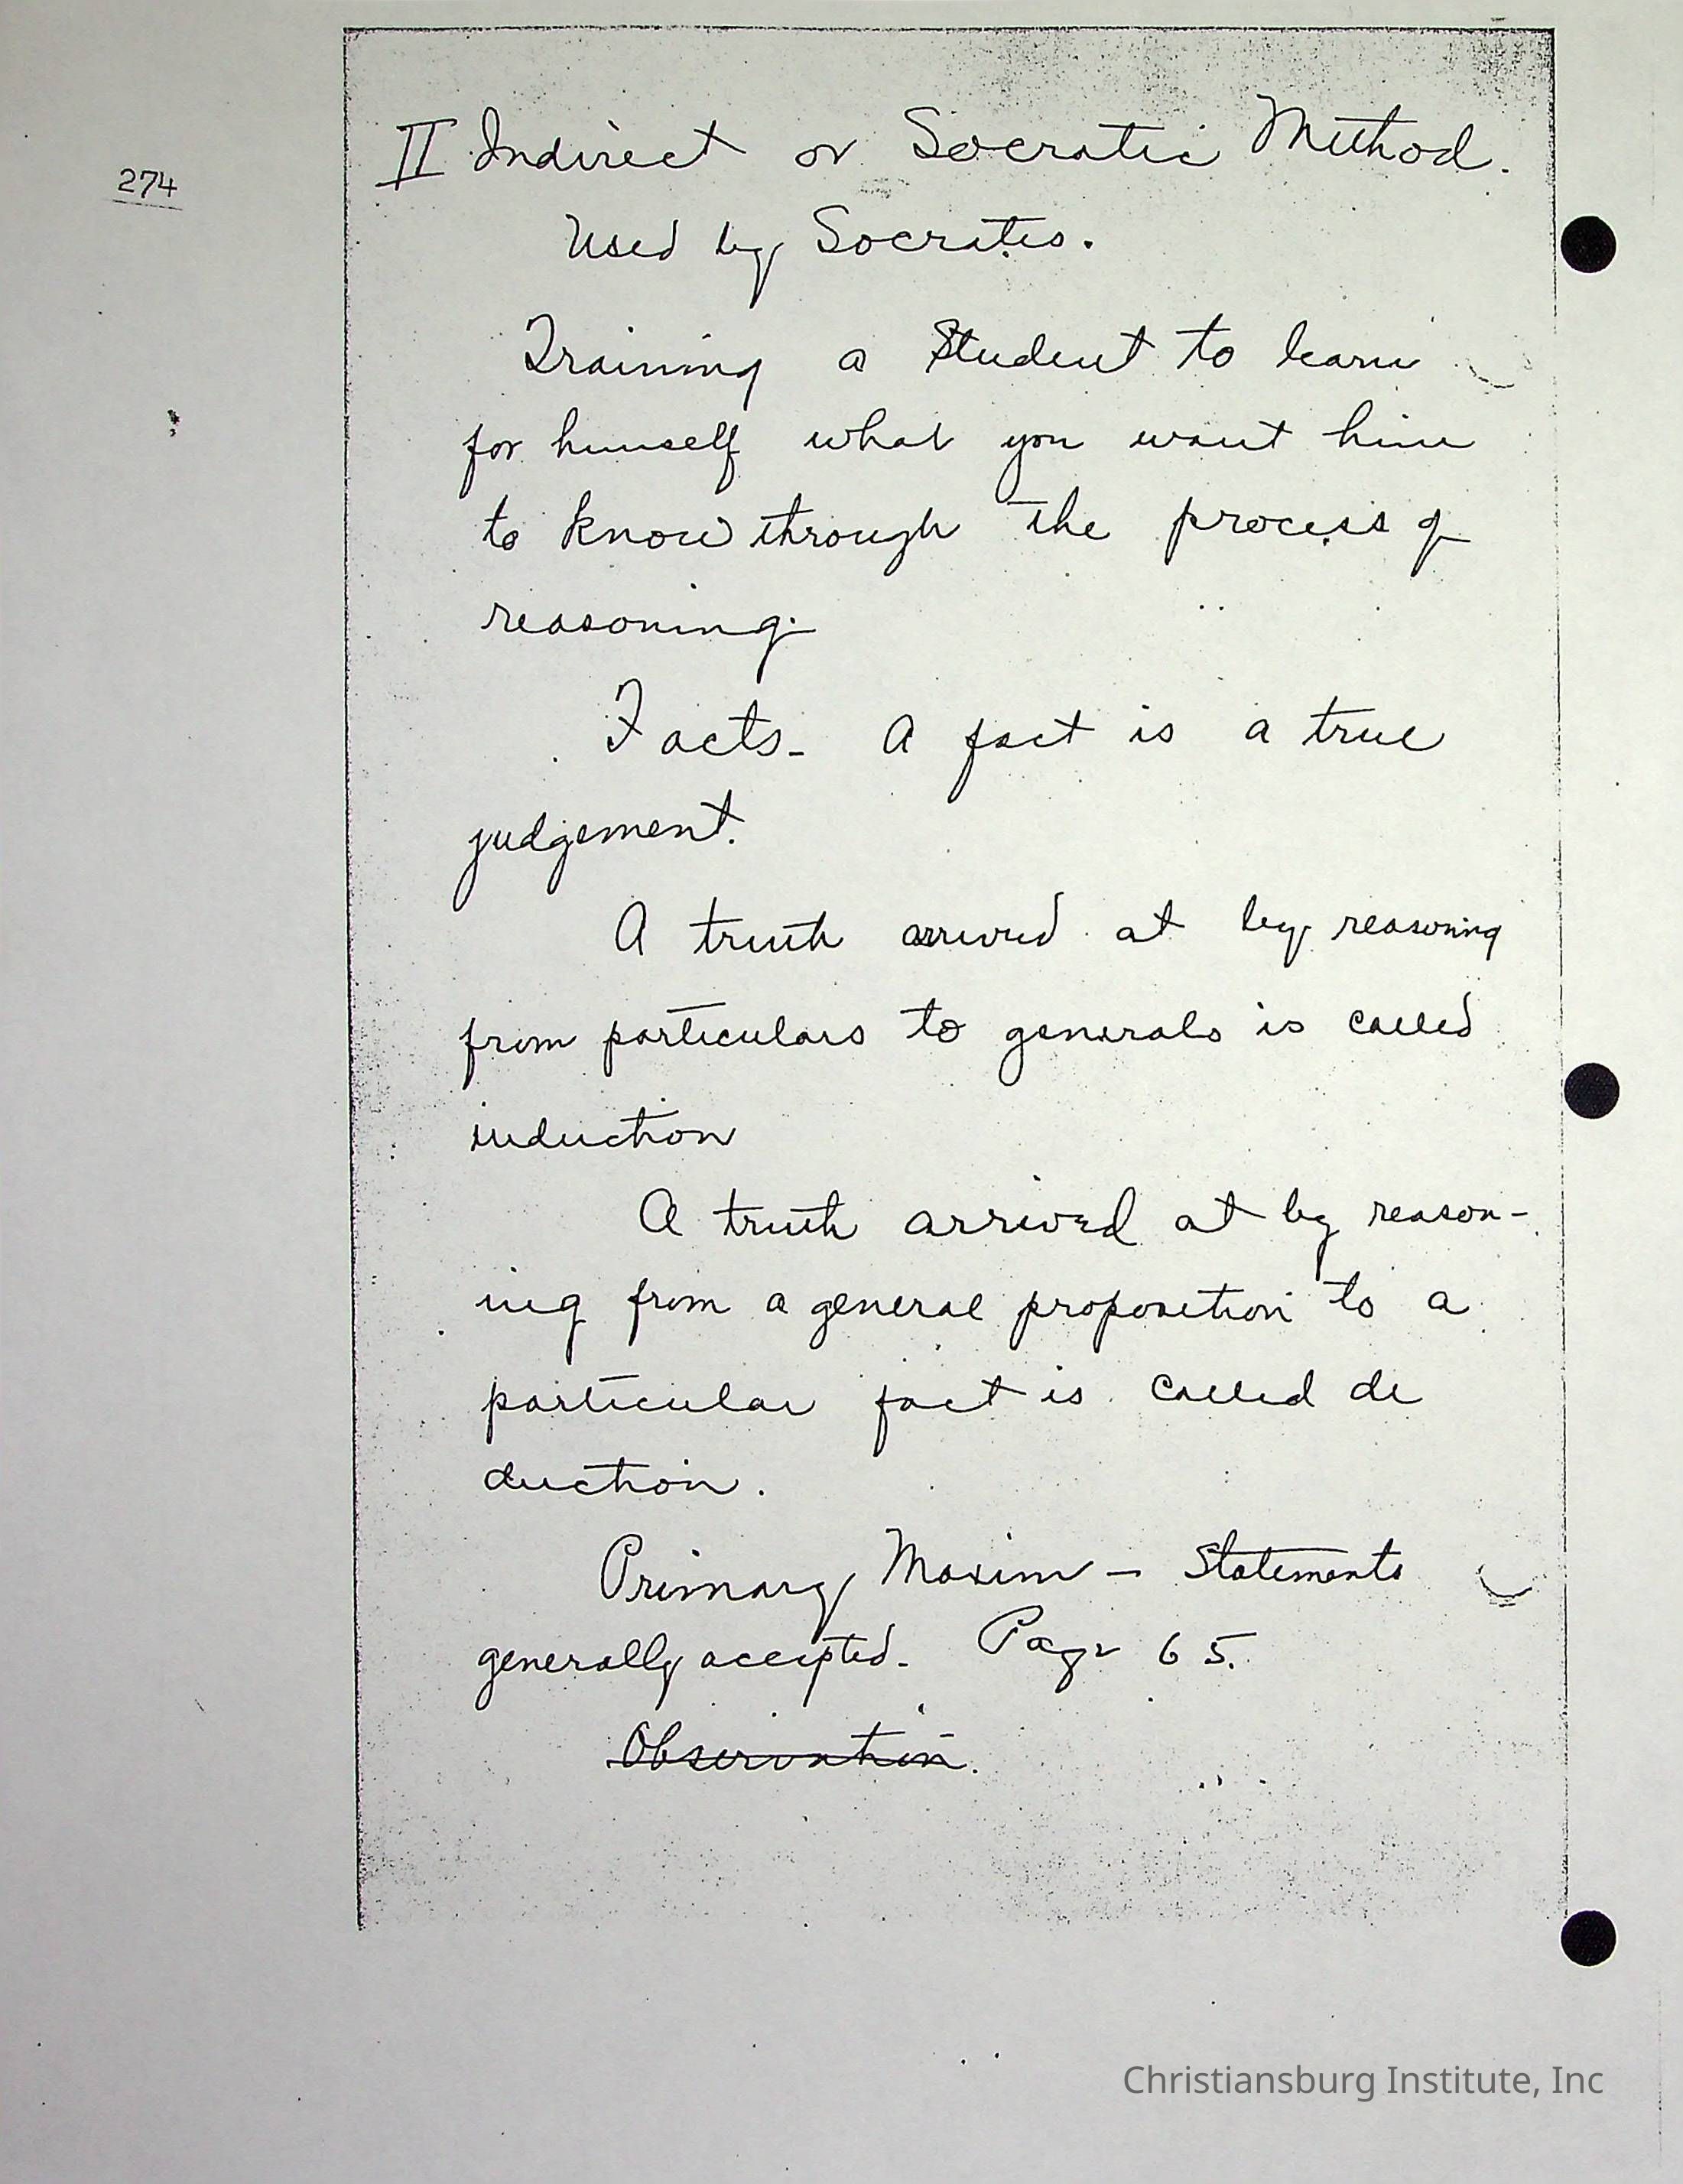 274
II Indirect or Socratic Method.
Used by Socrates.
Training a Student to learn
for himself what you want him
to know through the process of
reasoning.
Facts - A fact is a true
judgement.
A truth arrived at by reasoning
from particulars to generals is called
induction
A truth arrived at by reason-
ing from a general proposition to a
particular fact is called de
duction.
Primary Maxim - Statements
generally accepted. Page 65.
Observation.
Christiansburg Institute, Inc